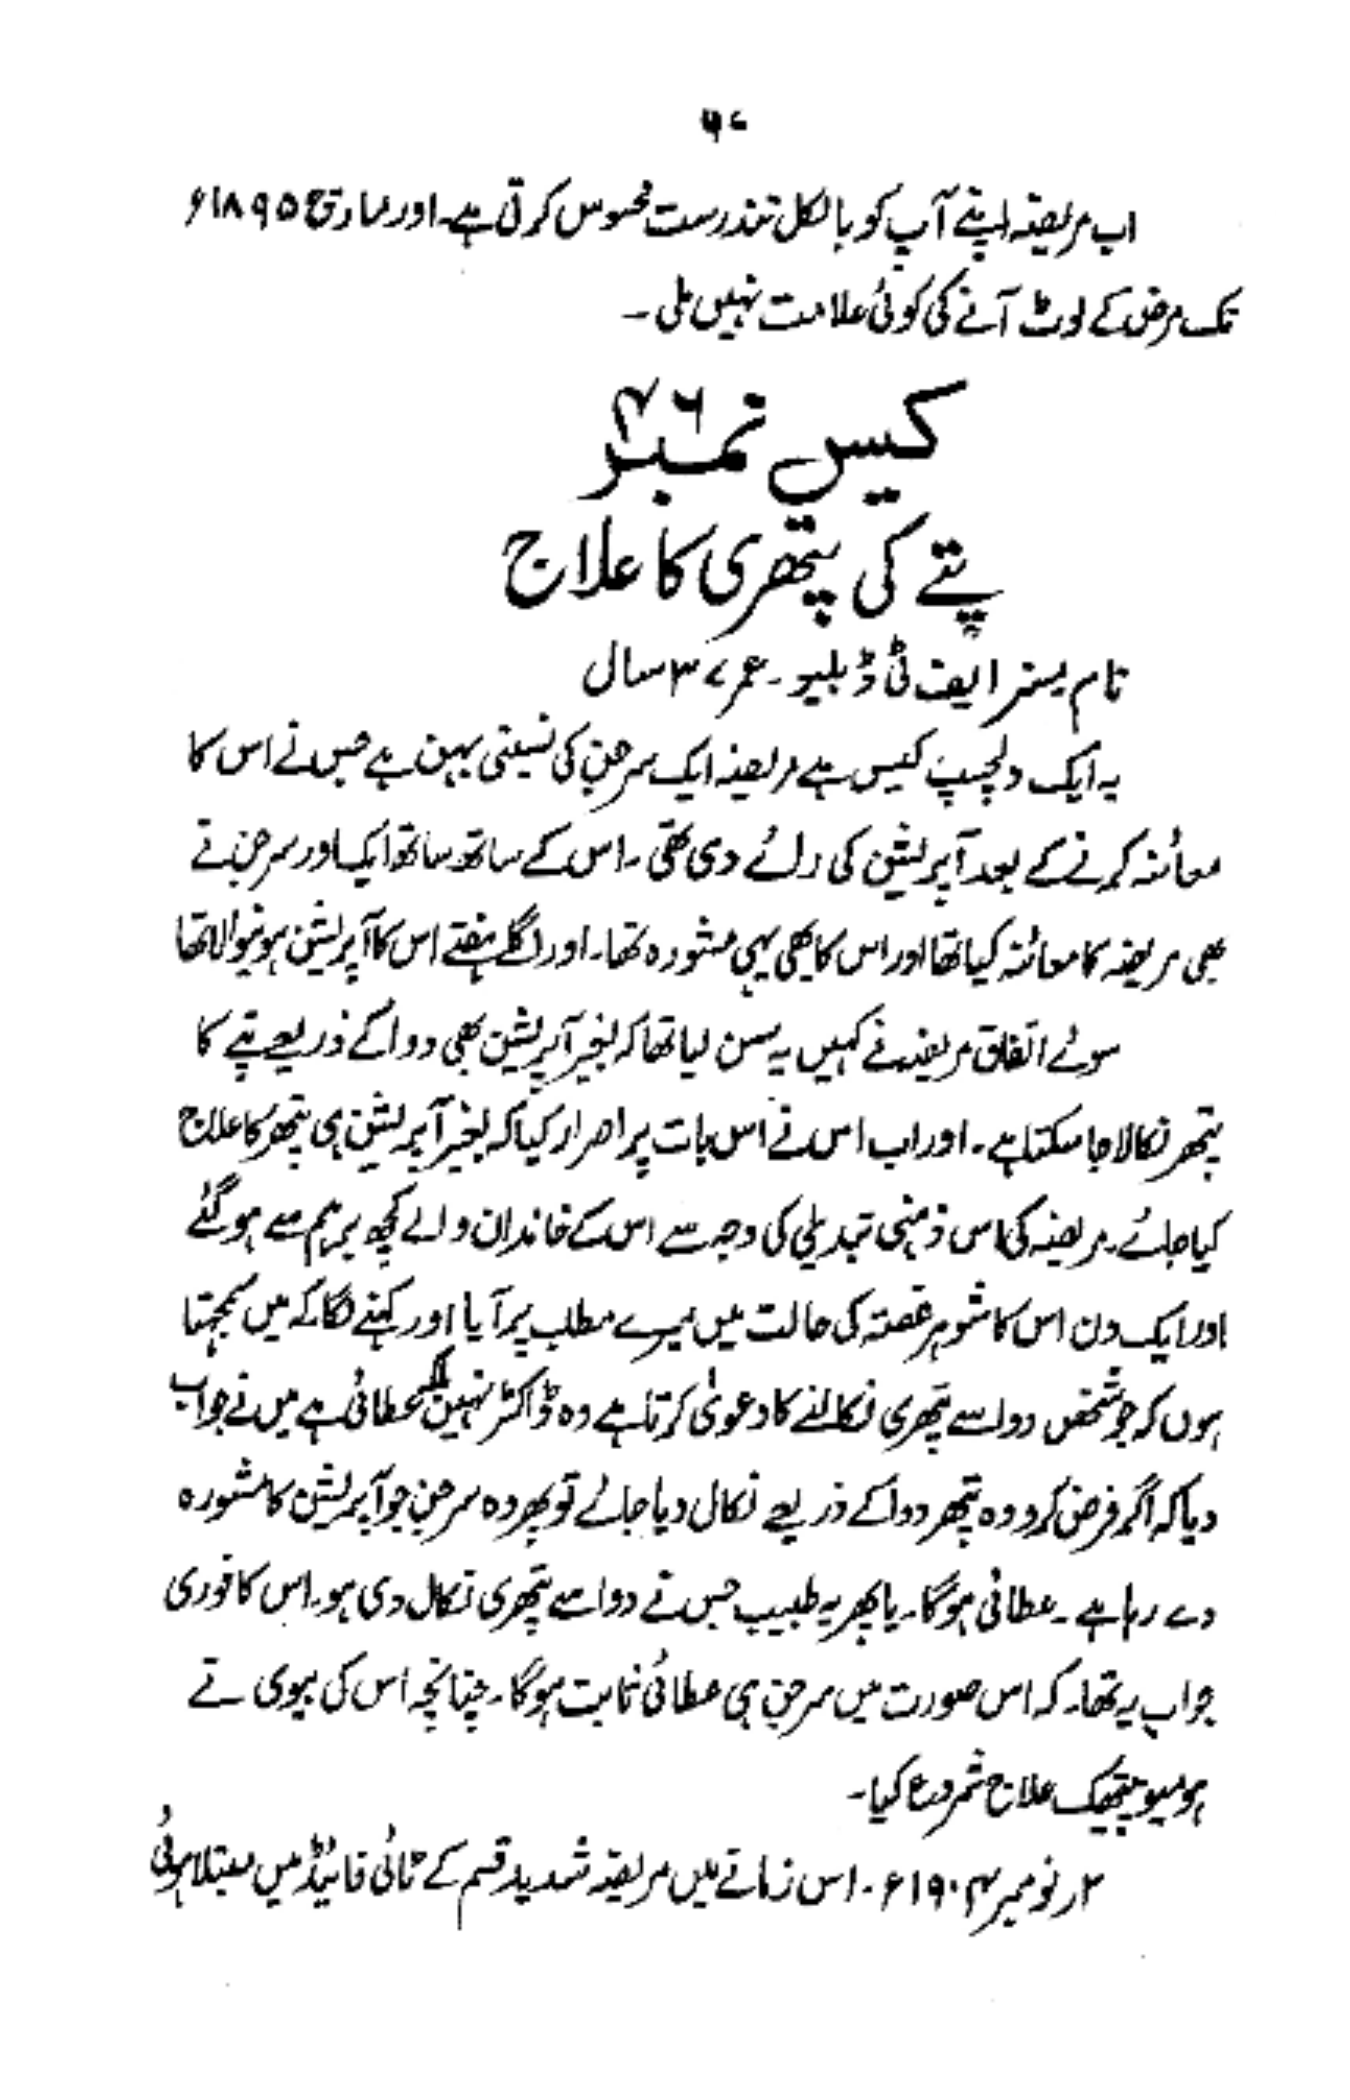 ۵۷
اب مریضہ اپنے آپ کو بالکل تندرست محسوس کرتی ہے۔ اور مارچ ۱۸۹۵ء
تک مرض کے لوٹ آنے کی کوئی علامت نہیں ملی۔
کیس نمبر ۴۶
پتے کی پتھری کا علاج
نام مسز ایف ٹی ڈبلیو۔ عمر ۳۷ سال
یہ ایک دلچسپ کیس ہے مریضہ ایک سرجن کی نسبتی بہن ہے جس نے اس کا
معائنہ کرنے کے بعد آپریشن کی رائے دی تھی۔ اس کے ساتھ ساتھ ایک اور سرجن نے
بھی مریضہ کا معائنہ کیا تھا اور اس کا بھی یہی مشورہ تھا۔ اور اگلے ہفتے اس کا آپریشن ہونیوالا تھا
سوئے اتفاق مریضہ نے کہیں یہ سن لیا تھا کہ بغیر آپریشن بھی دوا کے ذریعے پتے کا
پتھر نکالا جا سکتا ہے۔ اور اب اس نے اس بات پر اصرار کیا کہ بغیر آپریشن ہی پتھر کا علاج
کیا جائے۔ مریضہ کی اس ذہنی تبدیلی کی وجہ سے اس کے خاندان والے کچھ برہم سے ہو گئے
اور ایک دن اس کا شوہر غصہ کی حالت میں میرے مطلب پر آیا اور کہنے لگا کہ میں سمجھتا
ہوں کہ جو شخص دوا سے پتھری نکالنے کا دعویٰ کرتا ہے وہ ڈاکٹر نہیں بلکہ عطائی ہے میں نے جواب
دیا کہ اگر فرض کرو وہ پتھر دوا کے ذریعے نکال دیا جائے تو پھر وہ سرجن جو آپریشن کا مشورہ
دے رہا ہے۔ عطائی ہوگا۔ یا پھر یہ طبیب جس نے دوا سے پتھری نکال دی ہو۔ اس کا فوری
جواب یہ تھا۔ کہ اس صورت میں سرجن ہی عطائی ثابت ہوگا۔ چنانچہ اس کی بیوی نے
ہومیوپیتھک علاج شروع کیا۔
۲ر نومبر ۱۹۰۴ء۔ اس زمانے میں مریضہ شدید قسم کے ٹائی فائیڈ میں مبتلا ہوئی